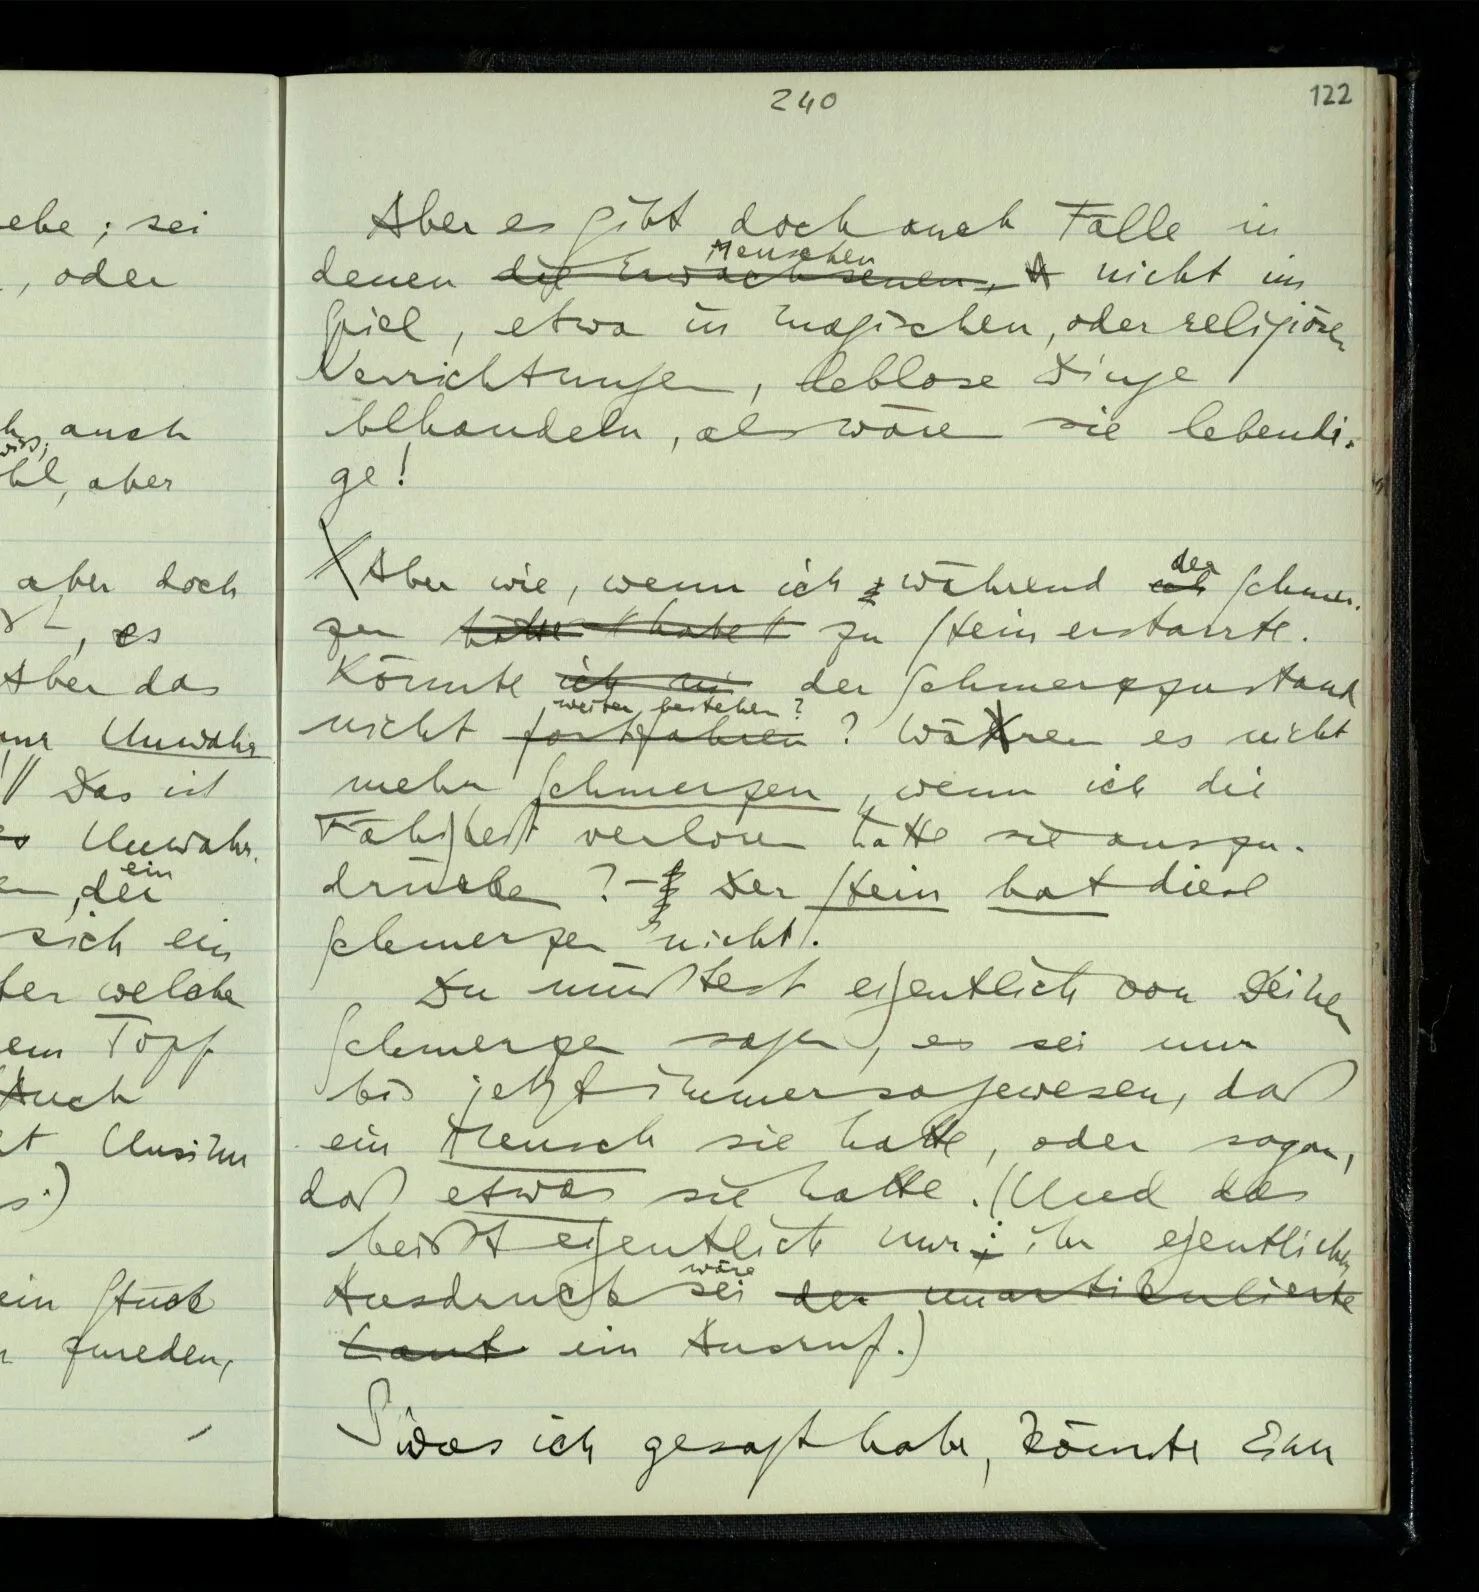 240
122
ebe; sei
, oder
auch
hl, aber
aber doch
, es
Aber das
nur Unwahr
// Das ist
Unwahr-
ein
, der
sich ein
ber welche
em Topf
Auch
Unsinn
s.)
ein Stück
zureden,
Aber es gibt doch auch Fälle in
Menschen
denen die Erwachsenen, nicht im
Spiel, etwa in magischen, oder religiösen
Verrichtungen, leblose Dinge
behandeln, als wären sie lebendi-
ge!
der
Aber wie, wenn ich während Schmer-
zen hätte habe zu Stein erstarrte.
Könnte ich der Schmerzzustand
weiter bestehen?
nicht fortfahren? Wären es nicht
mehr Schmerzen, wenn ich die
Fähigkeit verloren hätte sie auszu-
drücken? – Der Stein hat diese
Schmerzen nicht!
Du müßtest eigentlich von Deinen
Schmerzen sagen, es sei nur
bis jetzt immer so gewesen, daß
ein Mensch sie hatte, oder sogar,
daß etwas sie hatte. (Und das
heißt eigentlich nur: ihr eigentlicher
wäre
Ausdruck sei der unartikulierte
Laut ein Ausruf.)
was ich gesagt habe, könnte Einen